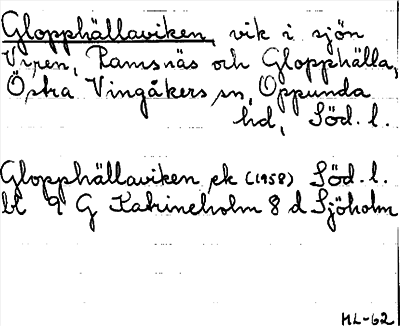 Glopphällaviken, vik i sjön
Viren, Ramsnäs och Glopphälla,
Östra Vingåkers sn, Oppunda
hd, Söd. l.
Glopphällaviken ek (1958) Söd. l.
bl 9 G Katrineholm 8 d Sjöholm
ML-62